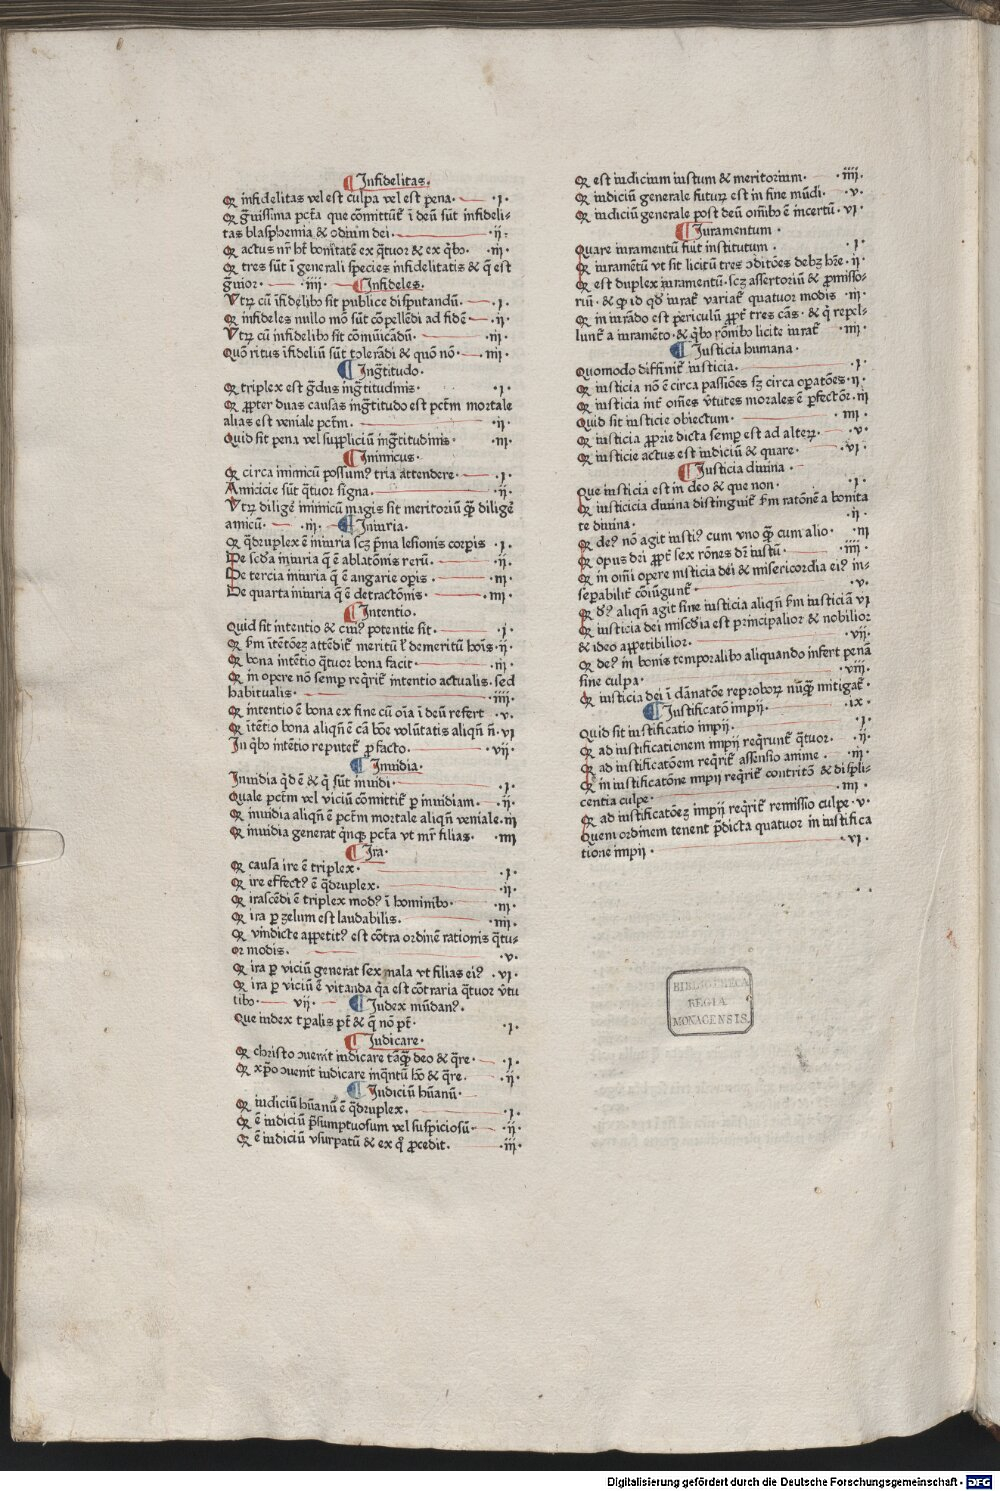 ¶ Infidelitas.
Ꝙ infidelitas vel est culpa vel est pena. ·ı·
Ꝙ g̃uissima pctã que cõmittũt᷑ ĩ deũ sũt infideli-
tas blasphemia & odium dei. ·ıȷ·
Ꝙ actus nr̃ ht̃ bonitatẽ ex q̃tuor & ex q̃bꝰ. ·ııȷ·
Ꝙ tres sũt ĩ generali species infidelitatis & q̃ est
g̃uior. ·ıııȷ· ¶ Infideles.
Vtꝝ cũ ĩfidelibꝰ sit publice disputandũ. ·ı·
Ꝙ infideles nullo mõ sũt cõpellẽdi ad fidẽ ·ıȷ·
Vtꝝ cũ infidelibꝰ sit cõmũicãdũ. ·ııȷ·
Quõ ritus ĩfideliũ sũt tolerãdi & quõ nõ. ıııȷ·
¶ Ing̃titudo.
Ꝙ triplex est g̃dus ing̃titudinis. ·ı·
Ꝙ ꝓpter duas causas ing̃titudo est pctm̃ mortale
alias est veniale pctm̃. ·ıȷ·
Quid sit pena vel suppliciũ ing̃titudinis. ·ııȷ·
¶ Inimicus.
Ꝙ circa inimicũ possumꝰ tria attendere. ·ı·
Amicicie sũt q̃tuor signa. ·ıȷ·
Vtꝝ diligẽ inimicũ magis sit meritoriũ q̃ diligẽ
amicũ. ·ııȷ· ¶ Iniuria.
Ꝙ q̃druplex ẽ iniuria scꝫ p̃ma lesionis corꝑis ·ı·
De scd̃a iniuria q̃ ẽ ablatõnis rerũ. ·ıȷ·
De tercia iniuria q̃ ẽ angarie oꝑis. ·ııȷ·
De quarta iniuria q̃ ẽ detractõnis. ·ıııȷ·
¶ Intentio.
Quid sit intentio & cuiꝰ potentie sit. ·ı·
Ꝙ ẜm ĩtẽtõeꝫ attẽdit᷑ meritũ ł demeritũ hoĩs ·ıȷ·
Ꝙ bona intẽtio q̃tuor bona facit ·ııȷ·
Ꝙ in opere nõ semꝑ req̃rit᷑ intentio actualis. sed
habitualis. ·ıııȷ·
Ꝙ intentio ẽ bona ex fine cũ oĩa ĩ deũ refert ·v·
Ꝙ ĩtẽtio bona aliqñ ẽ cã bõe volũtatis aliqñ ñ. vı
In q̃bꝰ intẽtio reputet᷑ ꝓ facto. ·vıȷ·
¶ Inuidia.
Inuidia q̃d ẽ & q̃ sũt inuidi. ·ı·
Quale pctm̃ vel viciũ cõmittit᷑ ꝑ inuidiam. ·ıȷ·
Ꝙ inuidia aliqñ ẽ pctm̃ mortale aliqñ veniale. ııȷ
Ꝙ inuidia generat q̃nqꝫ pctã vt mr̃ filias. ·ıııȷ
¶ Ira.
Ꝙ causa ire ẽ triplex. ·ı·
Ꝙ ire effectꝰ ẽ q̃druplex. ·ıȷ·
Ꝙ irascẽdi ẽ triplex modꝰ ĩ hominibꝰ. ·ııȷ·
Ꝙ ira ꝑ zelum est laudabilis. ·ıııȷ·
Ꝙ vindicte appetitꝰ est cõtra ordinẽ rationis q̃tu-
or modis. ·v·
Ꝙ ira ꝑ viciũ generat sex mala vt filias eiꝰ. ·vı·
Ꝙ ira ꝑ viciũ ẽ vitanda q̃a est cõtraria q̃tuor v̑tu
tibꝰ. vıȷ· ¶ Iudex mũdanꝰ.
Que iudex tꝑalis pt̃ & q̃ nõ pt̃. ·ı·
¶ Iudicare.
Ꝙ christo ↄuenit iudicare tãq̃ deo & q̃re. ·ı·
Ꝙ xp̃o ↄuenit iudicare inq̃ntũ hõ & q̃re. ·ıȷ·
¶ Iudiciũ hũanũ.
Ꝙ iudiciũ hũanũ ẽ q̃druplex. ·ı·
Ꝙ ẽ iudiciũ p̃sumptuosum vel suspiciosũ. ·ıȷ·
Ꝙ ẽ iudiciũ vsurpatũ & ex q̊ ꝓcedit. ·ııȷ·
Ꝙ est iudicium iustum & meritorium. ·ıııȷ·
Ꝙ iudiciũ generale futuꝝ est in fine mũdi. ·v·
Ꝙ iudiciũ generale post deũ omĩbꝰ ẽ incertũ. vı·
¶ Iuramentum.
Quare iuramentũ fuit institutum. ·ı·
Ꝙ iuramẽtũ vt sit licitũ tres ↄditões debꝫ hr̃e ·ıȷ·
Ꝙ est duplex iuramentũ. scꝫ assertoriũ & ꝓmisso-
riũ. & ꝙ id qd̃ iurat᷑ variat᷑ quatuor modis ·ııȷ·
Ꝙ in iurãdo est periculũ ꝓpt̃ tres cãs. & q̃ repel-
lunt᷑ a iuramẽto. & q̃bꝰ rõnibꝰ licite iurat᷑ ·ıııȷ·
¶ Iusticia humana.
Quomodo diffinit᷑ iusticia. ·ı·
Ꝙ iusticia nõ ẽ circa passiões sꝫ circa oꝑatões. ıȷ·
Ꝙ iusticia int̃ om̃es v̑tutes morales ẽ ꝑfectõr. ııȷ
Quid sit iusticie obiectum. ıııȷ·
Ꝙ iusticia ꝓprie dicta semꝑ est ad alteꝝ. ·v·
Ꝙ iusticie actus est iudiciũ & quare. ·vı·
¶ Iusticia diuina.
Que iusticia est in deo & que non. ·ı·
Ꝙ iusticicia diuina distinguit᷑ ẜm ratõnẽ a bonita
te diuina. ·ıȷ·
Ꝙ deꝰ nõ agit iustiꝰ cum vno q̃ cum alio. ·ııȷ
Ꝙ opus dei ꝓpt̃ sex rões dr̃ iustũ. ·ıııȷ·
Ꝙ in om̃i opere iusticia dei & misericordia eiꝰ in-
seꝑabilit᷑ cõiũgunt᷑. ·v·
Ꝙ dꝰ aliqñ agit sine iusticia aliqñ ẜm iusticiã vı
Ꝙ iusticia dei misc̃dia est principalior & nobilior
& ideo appetibilior. ·vıȷ·
Ꝙ deꝰ in bonis temporalibꝰ aliquando infert penã
sine culpa. ·vııȷ·
Ꝙ iusticia dei ĩ dãnatõe reproboꝝ nũq̃ mitigat᷑.
¶ Iustificatõ impij. ·ıx·
Quid sit iustificatio impij. ·ı·
Ꝙ ad iustificationem impij req̃runt᷑ q̃tuor. ·ıȷ·
Ꝙ ad iustificatõem req̃rit᷑ assensio anime. ·ııȷ·
Ꝙ in iustificatõne impij req̃rit᷑ contritõ & displi-
centia culpe. ·ıııȷ·
Ꝙ ad iustificatõeꝫ impij req̃rit᷑ remissio culpe ·v·
Quem ordinem tenent p̃dicta quatuor in iustifica
tione impij. ·vı·
BIBLIOTHECA
REGIA
MONACENSIS.
Digitalisierung gefördert durch die Deutsche Forschungsgemeinschaft - DFG